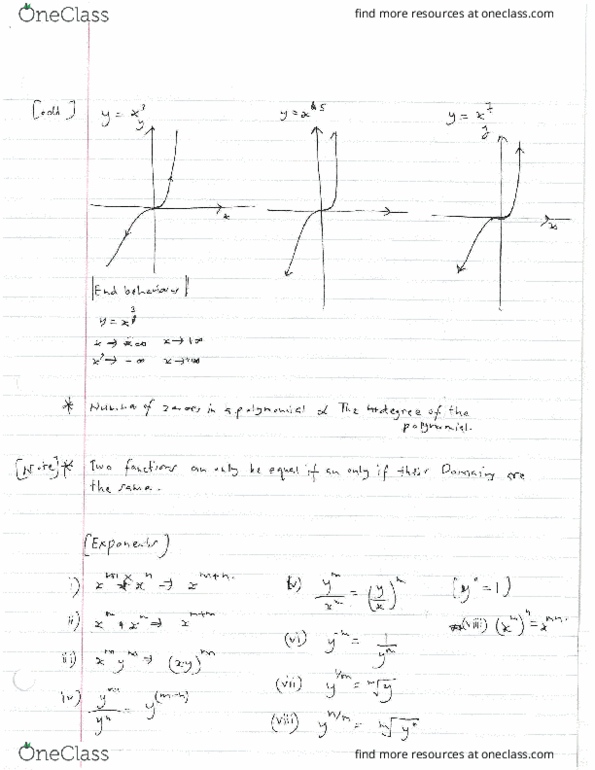 OneClass
find more resources at oneclass.com
[odd]
y = x³
y = x⁵
y = x⁷
y
y
x
x
|End behaviour|
y = x³
x → -∞ x → +∞
x³ → -∞ x → +∞
* Number of zeroes in a polynomial α The degree of the
polynomial.
[Note]* Two functions can only be equal if an only if their Domains are
the same.
[Exponents]
i) xᵐ × xⁿ → xᵐ⁺ⁿ
ii) xᵐ + xᵐ → xᵐ⁺ᵐ
iii) xᵐ yᵐ → (xy)ᵐ
iv) yᵐ/yⁿ = y^(m-n)
v) yᵐ/xᵐ = (y/x)ᵐ
(y⁰ = 1)
(vi) y⁻ᵐ = 1/yᵐ
(viii) (xᵐ)ⁿ = xᵐⁿ
(vii) y^(1/m) = ᵐ√y
(viii) y^(n/m) = ᵐ√yⁿ
OneClass
find more resources at oneclass.com